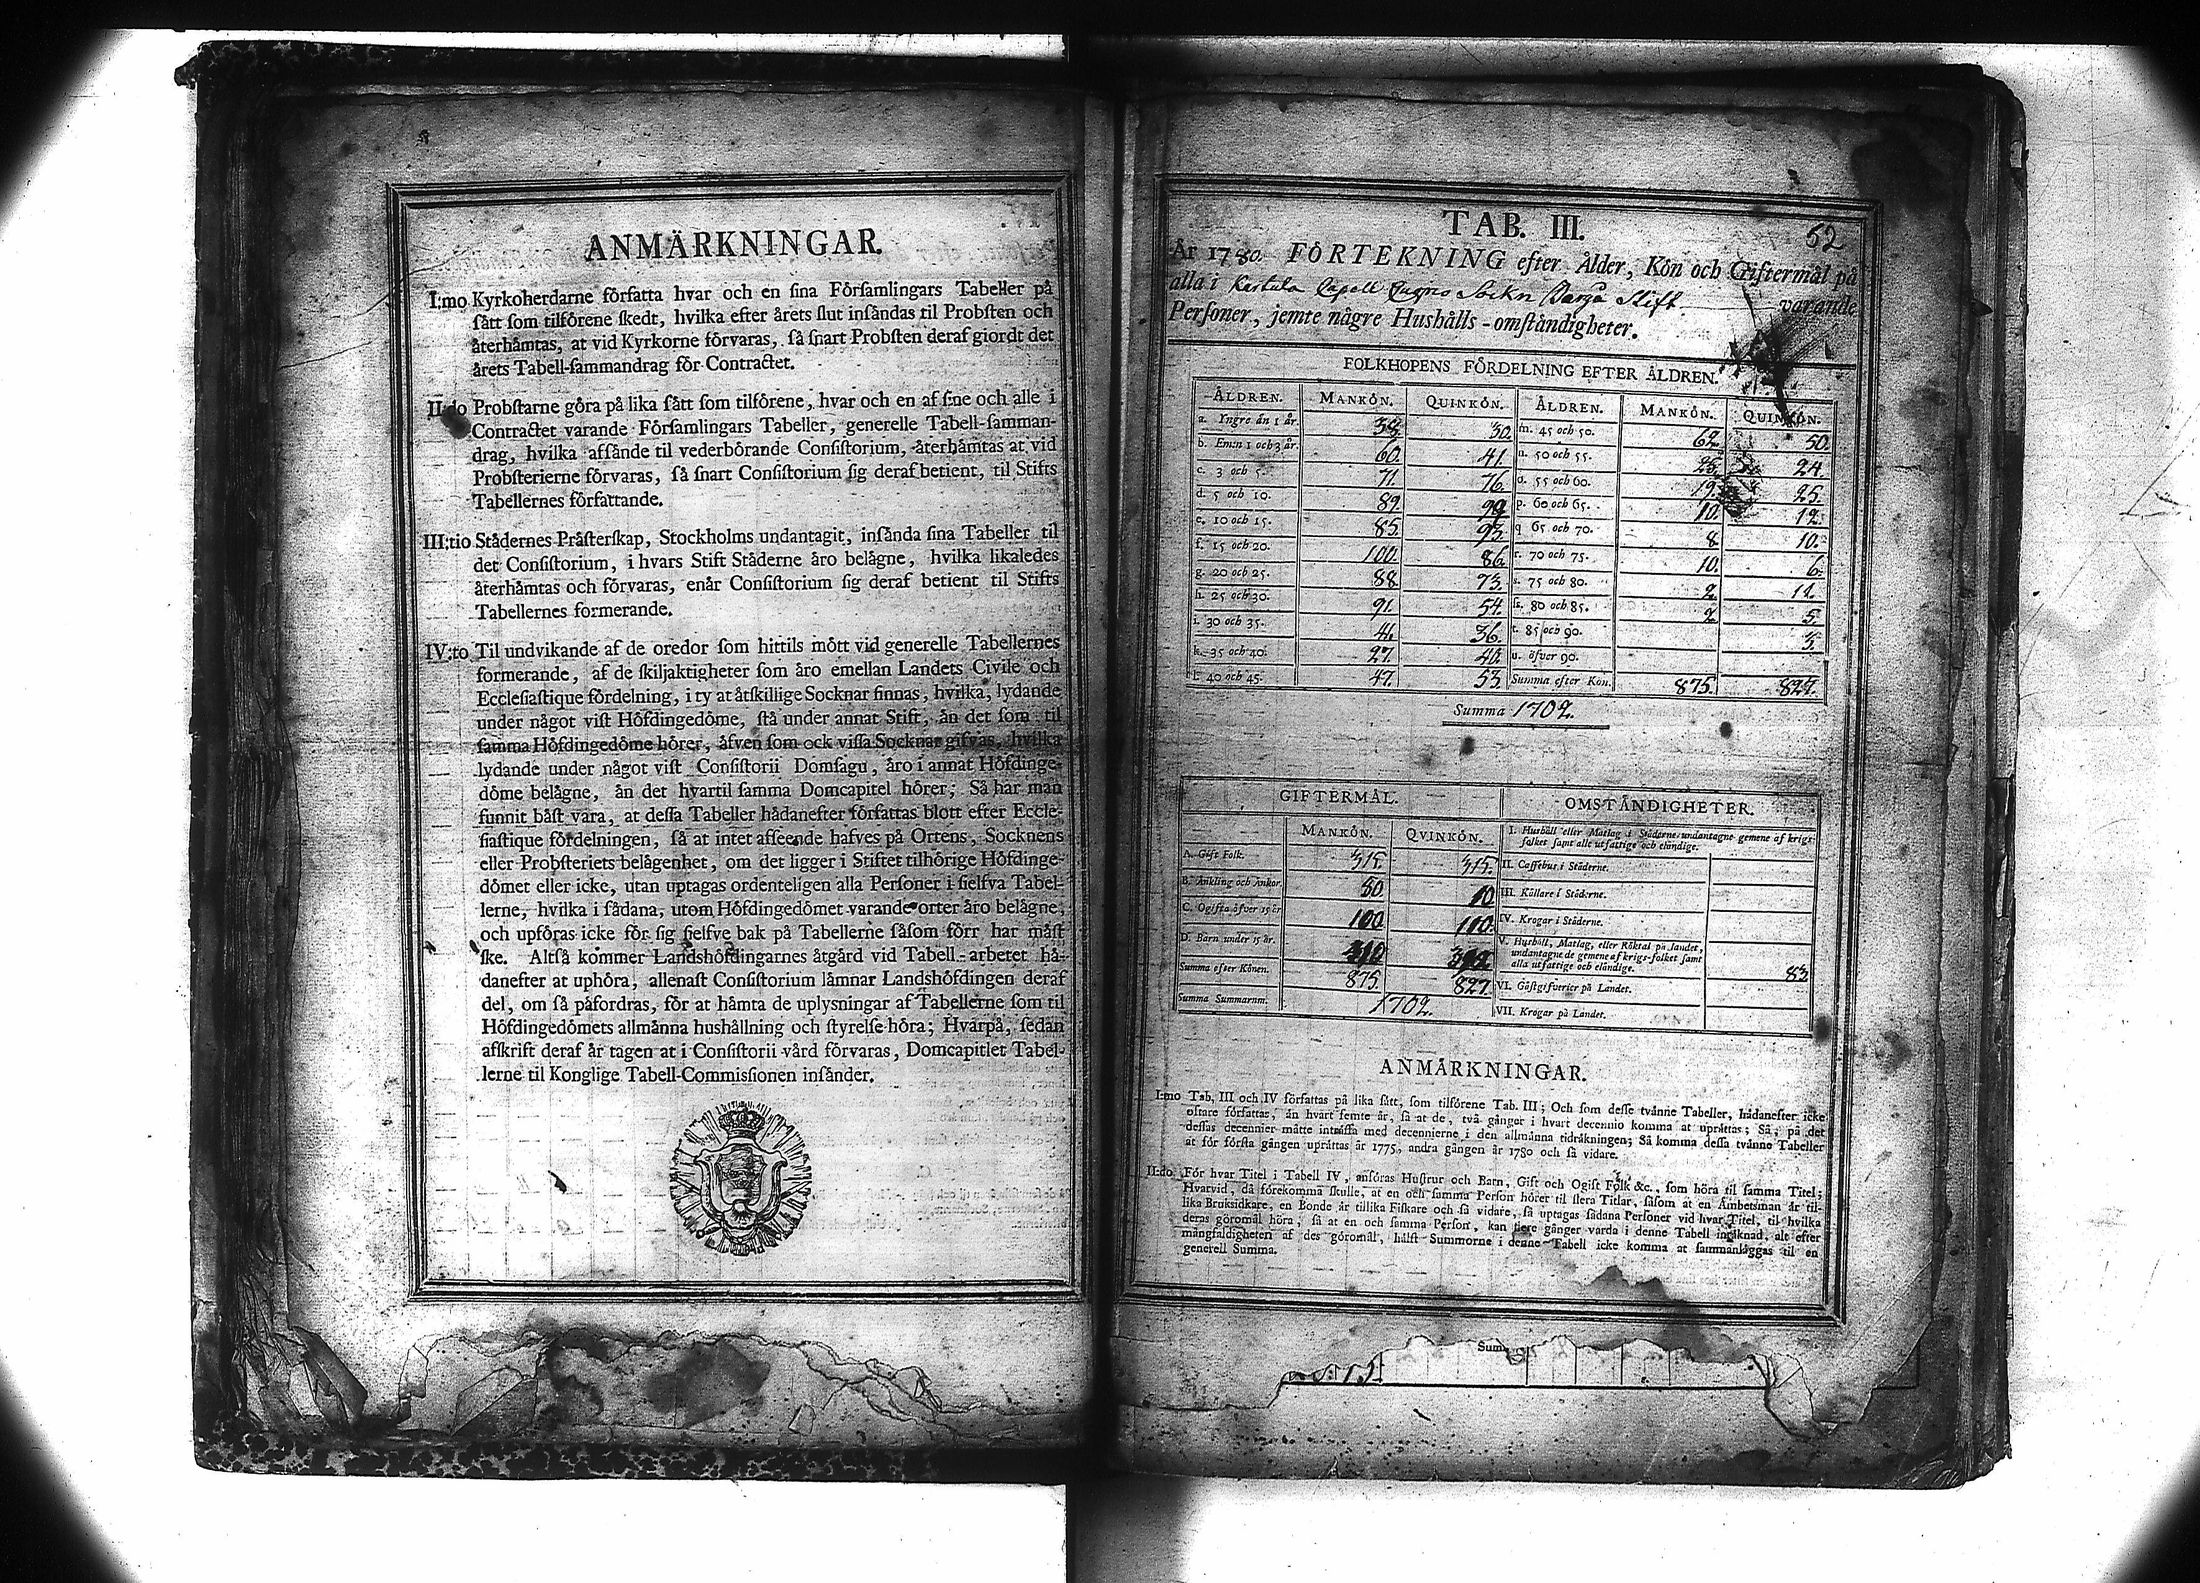 ANMÄRKNINGAR.
I:mo Kyrkoherdarne författa hvar och en sina Församlingars Tabeller på
sått som tilförene skedt, hvilka efter årets slut insändas til Probsten och
återhåmtas, at vid Kyrkorne förvaras, så snart Probsten deraf giordt det
årets Tabell-sammandrag för Contractet.
II:do Probstarne göra på lika sått som tilförene, hvar och en af sine och alle i
Contractet varande Församlingars Tabeller, generelle Tabell-samman-
drag, hvilka affånde til vederbörande Consistorium, återhåmtas at vid
Probsterierne förvaras, så snart Consistorium sig deraf betient, til Stifts
Tabellernes författande.
III:tio Städernes Pråsterskap, Stockholms undantagit, insånda sina Tabeller til
det Consistorium, i hvars Stift Ståderne åro belågne, hvilka likaledes
återhåmtas och förvaras, enår Consistorium sig deraf betient til Stifts
Tabellernes formerande.
IV:to Til undvikande af de oredor som hittils mött vid generelle Tabellernes
formerande, af de skiljaktigheter som åro emellan Landets Civile och
Ecclesiastique fördelning, i ty at åtskillige Socknar finnas, hvilka, lydande
under något vist Höfdingedöme, stå under annat Stift, ån det som til
samma Höfdingedöme hörer, åfven som ock vissa Socknar gifvas, hvilka
lydande under något vist Consistorii Domsagu, åro i annat Höfdinge-
döme belågne, ån det hvartil samma Domcapitel hörer; Så har man
funnit båst vara, at dessa Tabeller hådanefter författas blott efter Eccle-
siastique fördelningen, så at intet afseende hafves på Ortens, Socknens
eller Probsteriets belågenhet, om det ligger i Stiftet tilhörige Höfdinge-
dömet eller icke, utan uptagas ordenteligen alla Personer i sielfva Tabel-
lerne, hvilka i sådana, utom Höfdingedömet varande orter åro belågne,
och upföras icke för sig sielfve bak på Tabellerne såsom förr har måst
ske. Altså kommer Landshöfdingarnes åtgård vid Tabell-arbetet hå-
danefter at uphöra, allenast Consistorium låmnar Landshöfdingen deraf
del, om så påfordras, för at håmta de uplysningar af Tabellerne som til
Höfdingedömets allmånna hushållning och styrelse höra; Hvarpå, sedan
afskrift deraf år tagen at i Consistorii vård förvaras, Domcapitlet Tabel-
lerne til Konglige Tabell-Commissionen insånder.
62
TAB. III.
År 1780. FÖRTEKNING efter Ålder, Kön och Giftermål på
alla i Kartula Capell Socken Borgå Stift varande
Personer, jemte någre Hushålls-omståndigheter.
FOLKHOPENS FÖRDELNING EFTER ÅLDREN.
ÅLDREN. MANKÖN. QUINKÖN. ÅLDREN. MANKÖN. QUINKÖN.
a. Yngre ån 1 år 38. 30. m. 45 och 50. 62. 50.
b. Em:n 1 och 3 år. 60. 41. n. 50 och 55. 25. 24.
c. 3 och 5. 71. 76. o. 55 och 60. 19. 25.
d. 5 och 10. 89. 99. p. 60 och 65. 10. 12.
e. 10 och 15. 85. 93. q 65 och 70. 8. 10.
f. 15 och 20. 100. 86. r. 70 och 75. 10. 6.
g. 20 och 25. 88. 73. s. 75 och 80. 2. 11.
h. 25 och 30. 91. 54. ſt. 80 och 85. 2. 5.
i. 30 och 35. 41. 36. t. 85 och 90. 3.
k. 35 och 40. 27. 40. u. öfver 90.
l. 40 och 45. 47. 53. Summa efter Kön. 875. 827.
Summa 1702.
GIFTERMÅL. OMSTÅNDIGHETER.
MANKÖN. QVINKÖN.
I. Hushåll eller Matlag i Ståderne undantagne gemene af krigs-
folket samt alle utfattige och elåndige.
A. Gift Folk. 315. 315. II. Caffehus i Ståderne.
B. Änkling och Änkor. 50. 10 III. Källare i Ståderne.
C. Ogifta öfver 15 år 100. 110. IV. Krogar i Ståderne.
D. Barn under 15 år. V. Hushåll, Matlag, eller Röktal på landet,
undantagne de gemene af krigs-folket samt
alla utfattige och elåndige. 83
Summa efter Könen. 875. 827. VI. Gåstgifverier på Landet.
Summa Summarum. 1702. VII. Krogar på Landet.
ANMÅRKNINGAR.
I:mo Tab. III och IV författas på lika sått, som tilförene Tab. III; Och som desse tvånne Tabeller, hådanefter icke
oftare författas, ån hvart femte år, så at de, två gånger i hvart decennio komma at upråttas; Så, på det
dessas decennier måtte intråffa med decennierne i den allmånna tidråkningen; Så komma dessa tvånne Tabeller
at för första gången upråttas år 1775, andra gången år 1780 och så vidare.
II:do För hvar Titel i Tabell IV, anföras Hustrur och Barn, Gift och Ogift Folk &c. som höra til samma Titel;
Hvarvid, då förekomma skulle, at en och samma Person hörer til flera Titlar, såsom at en Ämbetsman år til-
lika Bruksidkare, en Bonde år tillika Fiskare och så vidare, så uptagas sådana Personer vid hvar Titel, til hvilka
deras göromål höra, så at en och samma Person, kan flere gånger varda i denne Tabell inråknad, alt efter
mångfaldigheten af des göromål, hålst Summorne i denne Tabell icke komma at sammanlåggas til en
generell Summa.